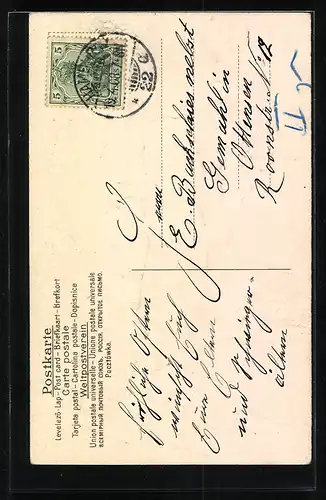 Postkarte
Levelező-Lap - Post card - Briefkaart - Brefkort
Carte postale
Tarjeta postal - Cartolina postale - Dopisnice
Weltpostverein.
Union postale universelle - Unione postale universale
ВСЕМІРНЫЙ ПОЧТОВЫЙ СОЮЗЪ. РОССІЯ. ОТКРЫТОЕ ПИСЬМО.
Pocztówka.
5 5
fröhliche Ostern
wünschen Euch
Eure Eltern
und Schwieger-
eltern
Fam
E. nebst
Gemahlin
Ottensen
Roonstr. No 12
II